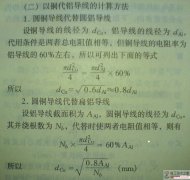 (二)以铜代铝导线的计算方法
1. 圆铜导线代替圆铝导线
设铜导线的线径为 dCu，铝导线的线径为 dAl，
代用条件是两者总电阻值相等，但铜导线的电阻率为
铝导线的 60%左右，所以可列出下面的等式
πd²Cu/4 = πd²Al/4 × 60%
所以 dCu = √0.6 dAl ≈ 0.8dAl
2. 圆铜导线代替扁铝导线
设扁铝导线截面积为 AAl，圆铜导线的线径为 dCu，
其并绕根数为 N0，代替时使两者电阻值相等，则有
N0 × πd²Cu/4 = AAl × 60%
所以 dCu = √(0.8AAl/N0) (mm)